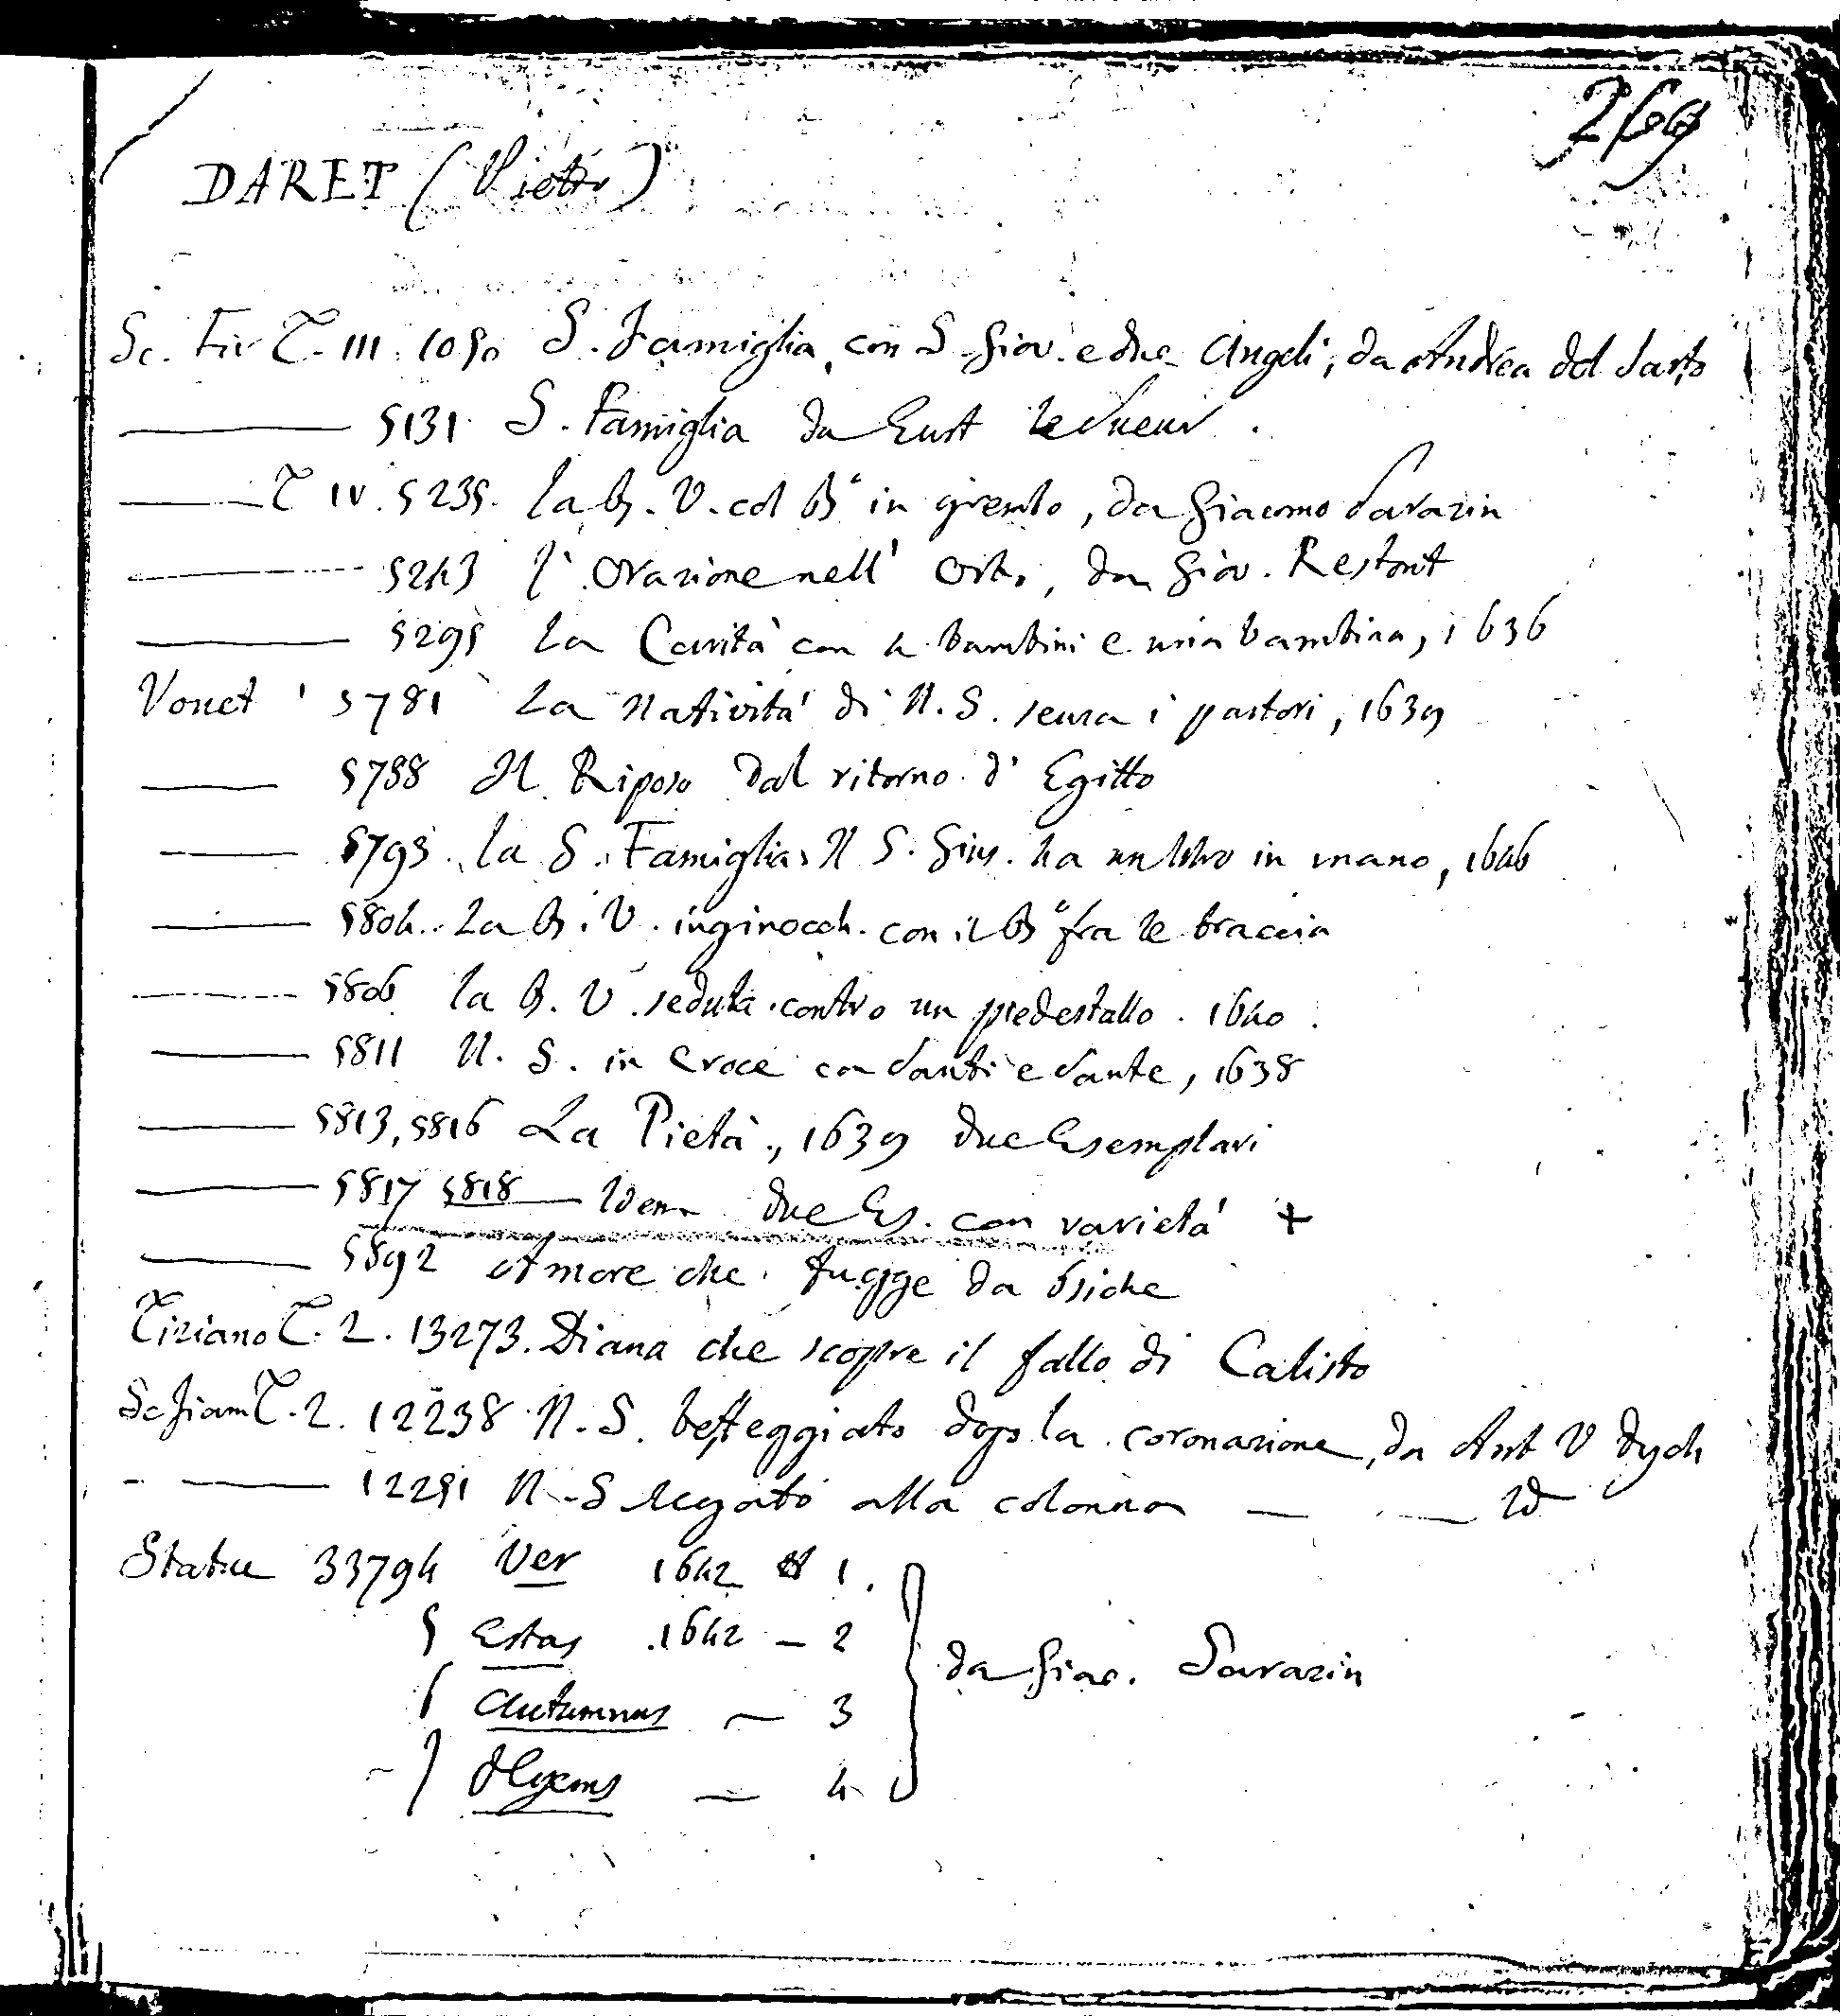 269
DARET (Pietro)
Sc. Fir T. III. 1050 S. Famiglia, con S. Giov. e due Angeli, da Andrea del Sarto
——— 5131. S. Famiglia da Eust le Sueur.
——— T IV. 5235. la B. V. col Bº in grembo, da Giacomo Sarazin
——— 5243 l'Orazione nell' Orto, da Giov. Restout
——— 5295 La Carità con 4 bambini e una bambina, 1636
Vouet 5781 La Natività di N. S. senza i pastori, 1639
——— 5788 Il Riposo dal ritorno d'Egitto
——— 5795. la S. Famiglia, Il S. Gius. ha un libro in mano, 1646
——— 5804. La B. V. inginocch. con il Bº fra le braccia
——— 5806 la B. V. seduta contro un piedestallo. 1640.
——— 5811 N. S. in Croce con Santi e Sante, 1638
——— 5813, 5816 La Pietà, 1639 due Esemplari
——— 5817 5818 — Idem due Es. con varietà +
——— 5892 Amore che fugge da Psiche
Tiziano T. 2. 13273. Diana che scopre il fallo di Calisto
Sc fiam T. 2. 12238 N. S. beffeggiato dopo la coronazione, da Ant V Dyck
——— 12251 N. S legato alla colonna — — Id
Statue 33794 Ver 1642 1.
5 Estas 1642 — 2
6 Autumnus — 3
7 Hyems — 4
da Giac. Sarazin